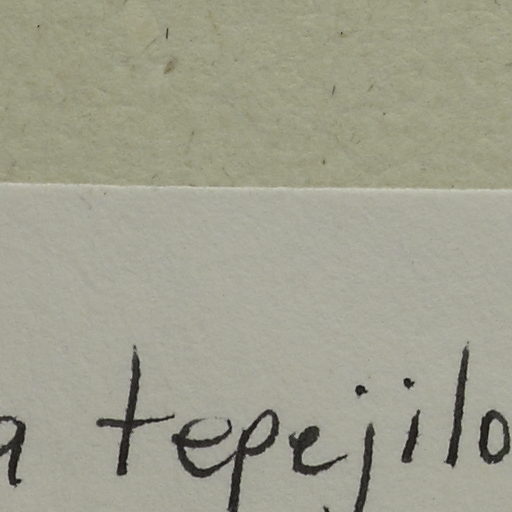 a tepejilo